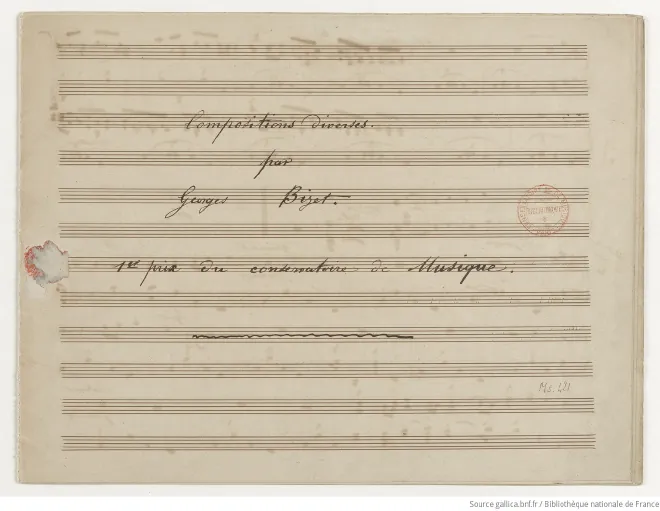 Compositions diverses.
par
Georges Bizet.
1er prix du conservatoire de Musique.
Ms. 481
Source gallica.bnf.fr / Bibliothèque nationale de France